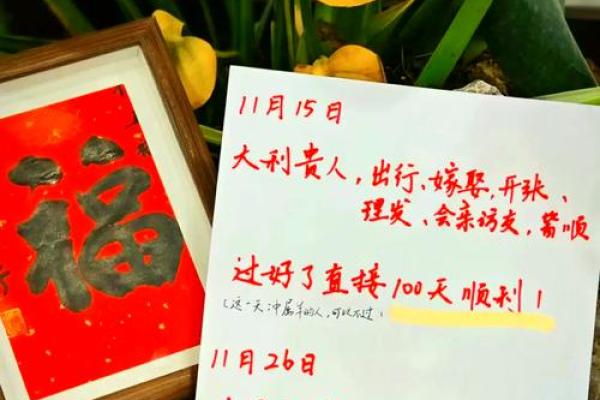 福
11月15日
大利贵人,出行、嫁娶,开张、
理发、会亲访友,皆顺
过好了直接100天顺利!
(这一天冲属羊的人,可以不过)
11月26日